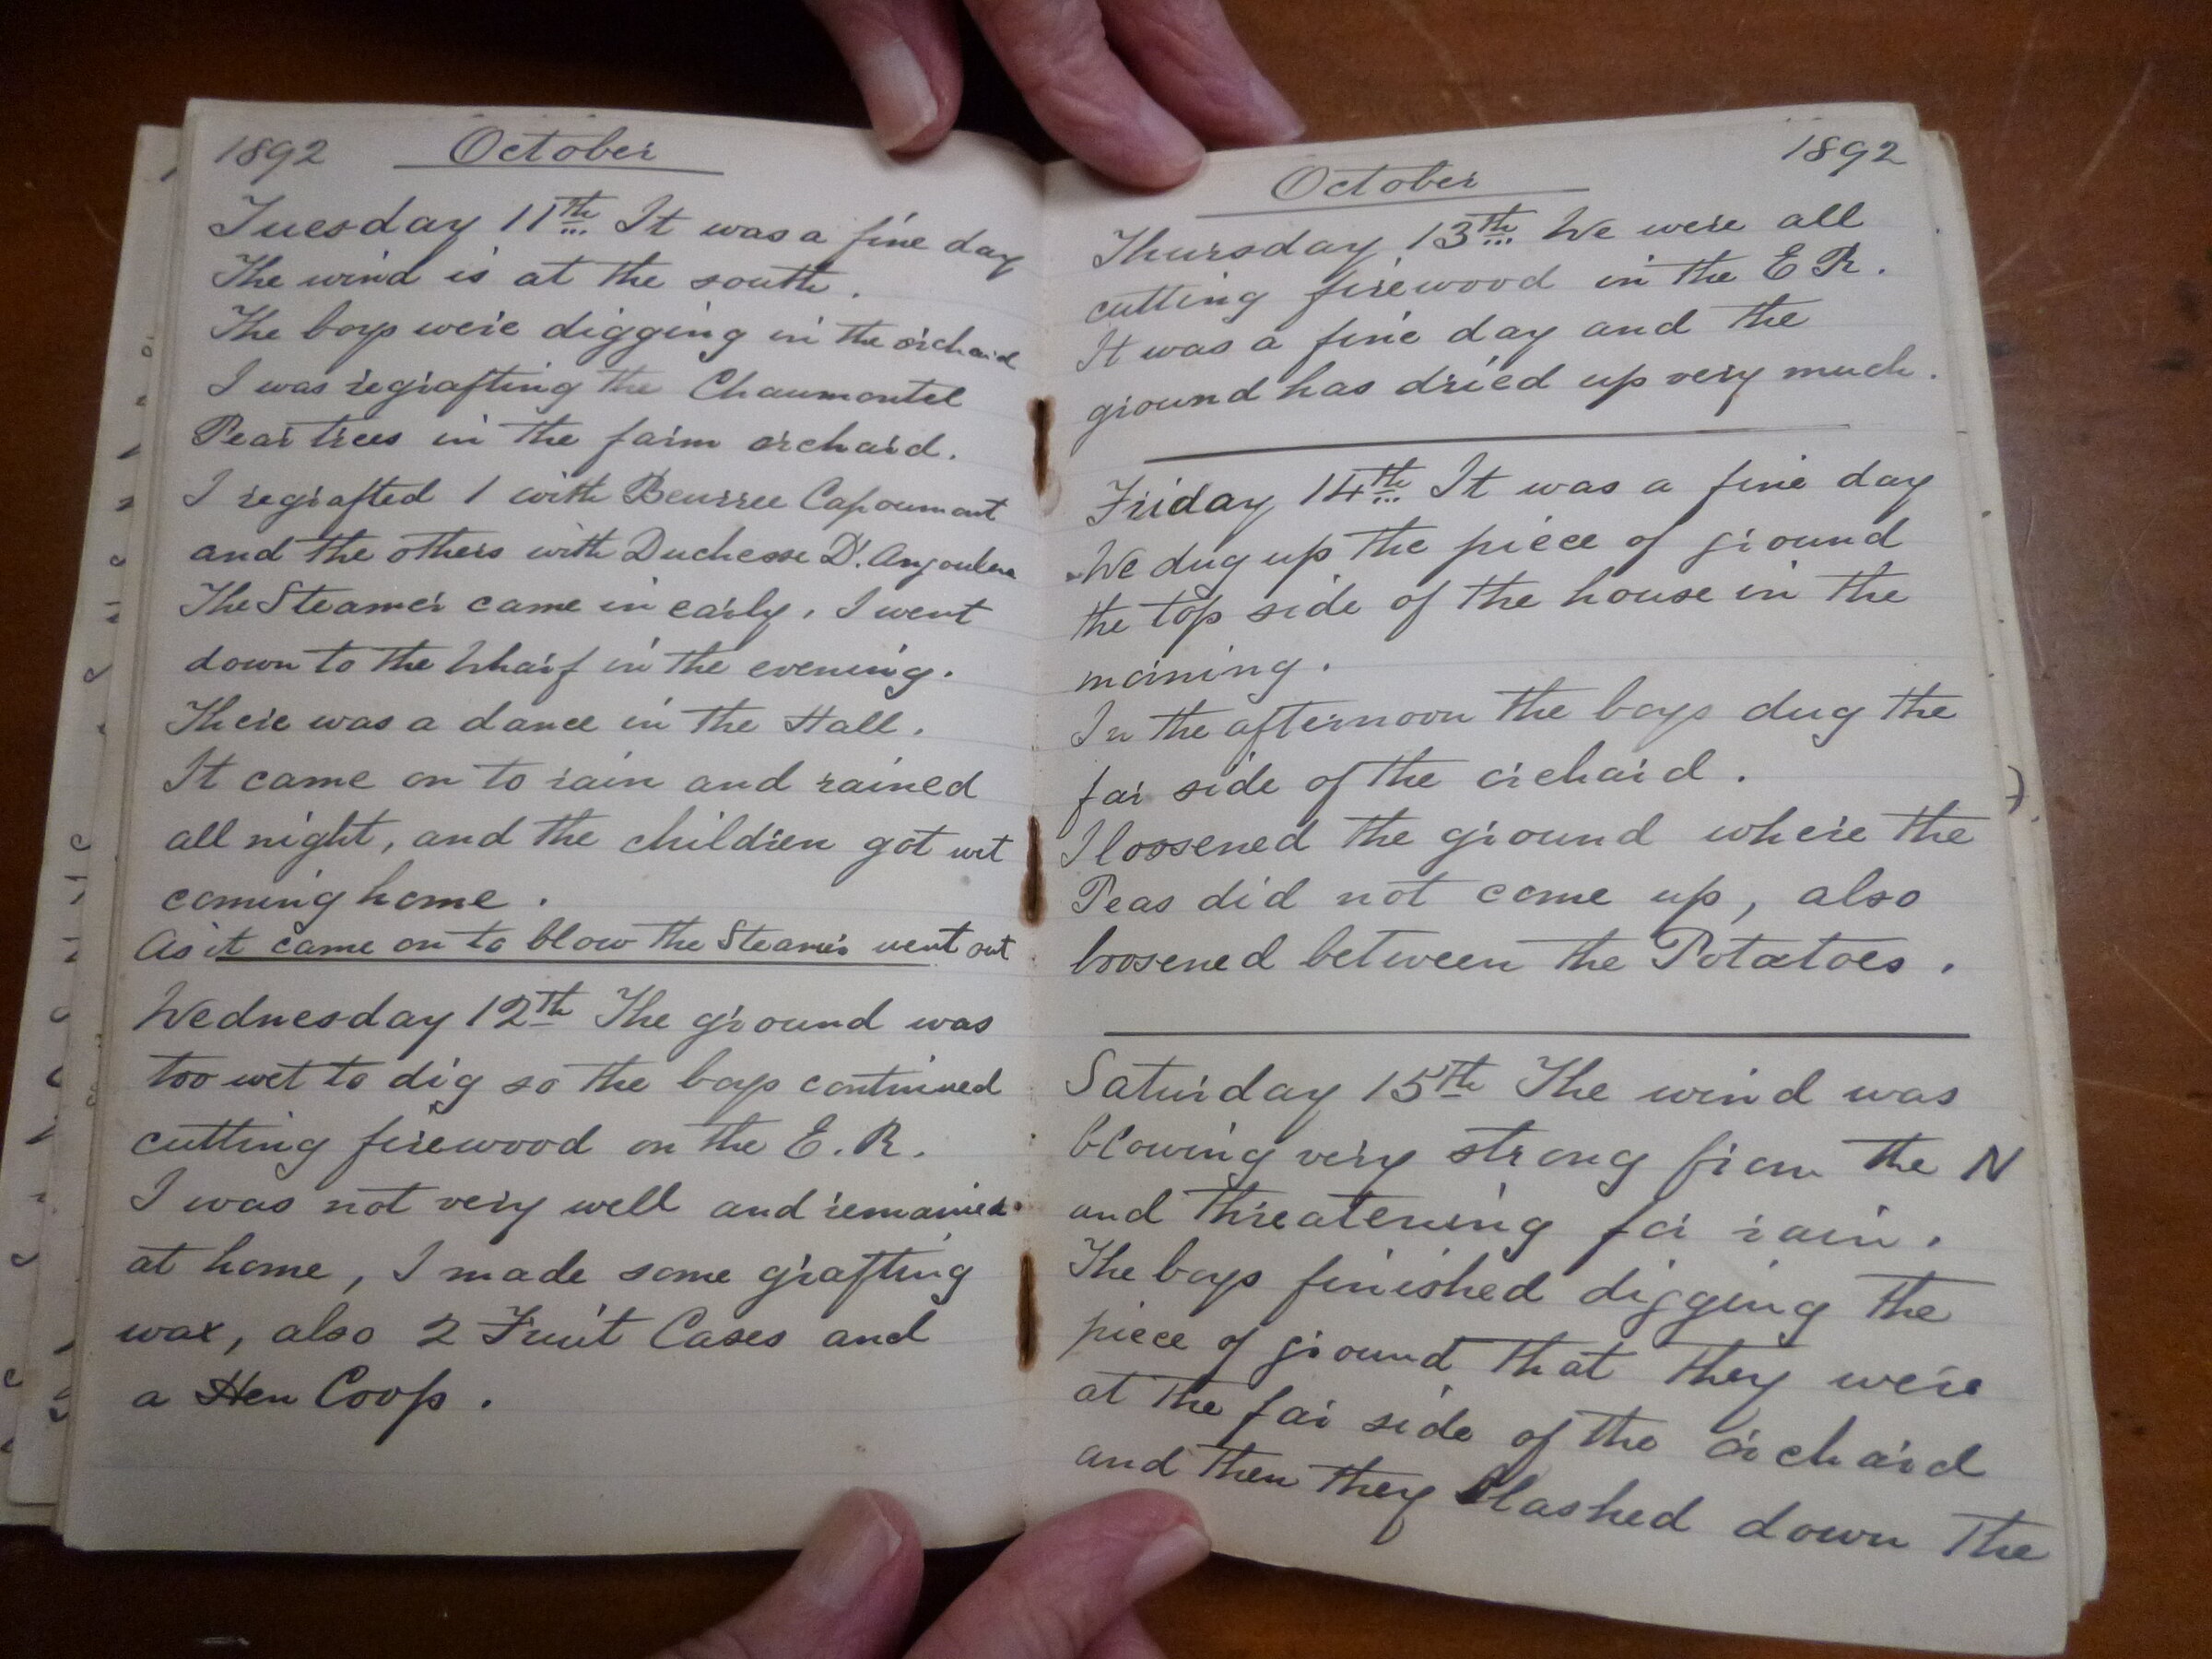 1892 October
Tuesday 11th It was a fine day
The wind is at the south.
The boys were digging in the orchard
I was regrafting the Chaumontel
Pear trees in the farm orchard.
I regrafted 1 with Beurree Capoumont
and the others with Duchesse D'. Angouleme
The Steamer came in early. I went
down to the Wharf in the evening.
There was a dance in the Hall.
It came on to rain and rained
all night, and the children got wet
coming home.
As it came on to blow the Steamer went out
Wednesday 12th The ground was
too wet to dig so the boys continued
cutting firewood on the E. R.
I was not very well and remained
at home, I made some grafting
wax, also 2 Fruit Cases and
a Hen Coop.
October 1892
Thursday 13th We were all
cutting firewood in the E R.
It was a fine day and the
ground has dried up very much.
Friday 14th It was a fine day
We dug up the piece of ground
the top side of the house in the
morning.
In the afternoon the boys dug the
far side of the orchard.
I loosened the ground where the
Peas did not come up, also
loosened between the Potatoes.
Saturday 15th The wind was
blowing very strong from the N
and threatening for rain.
The boys finished digging the
piece of ground that they were
at the far side of the orchard
and then they slashed down the